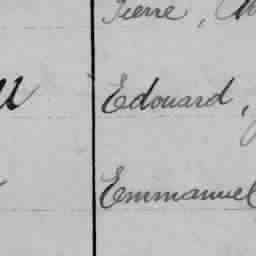 Pierre,
Edouard,
Emmanuel